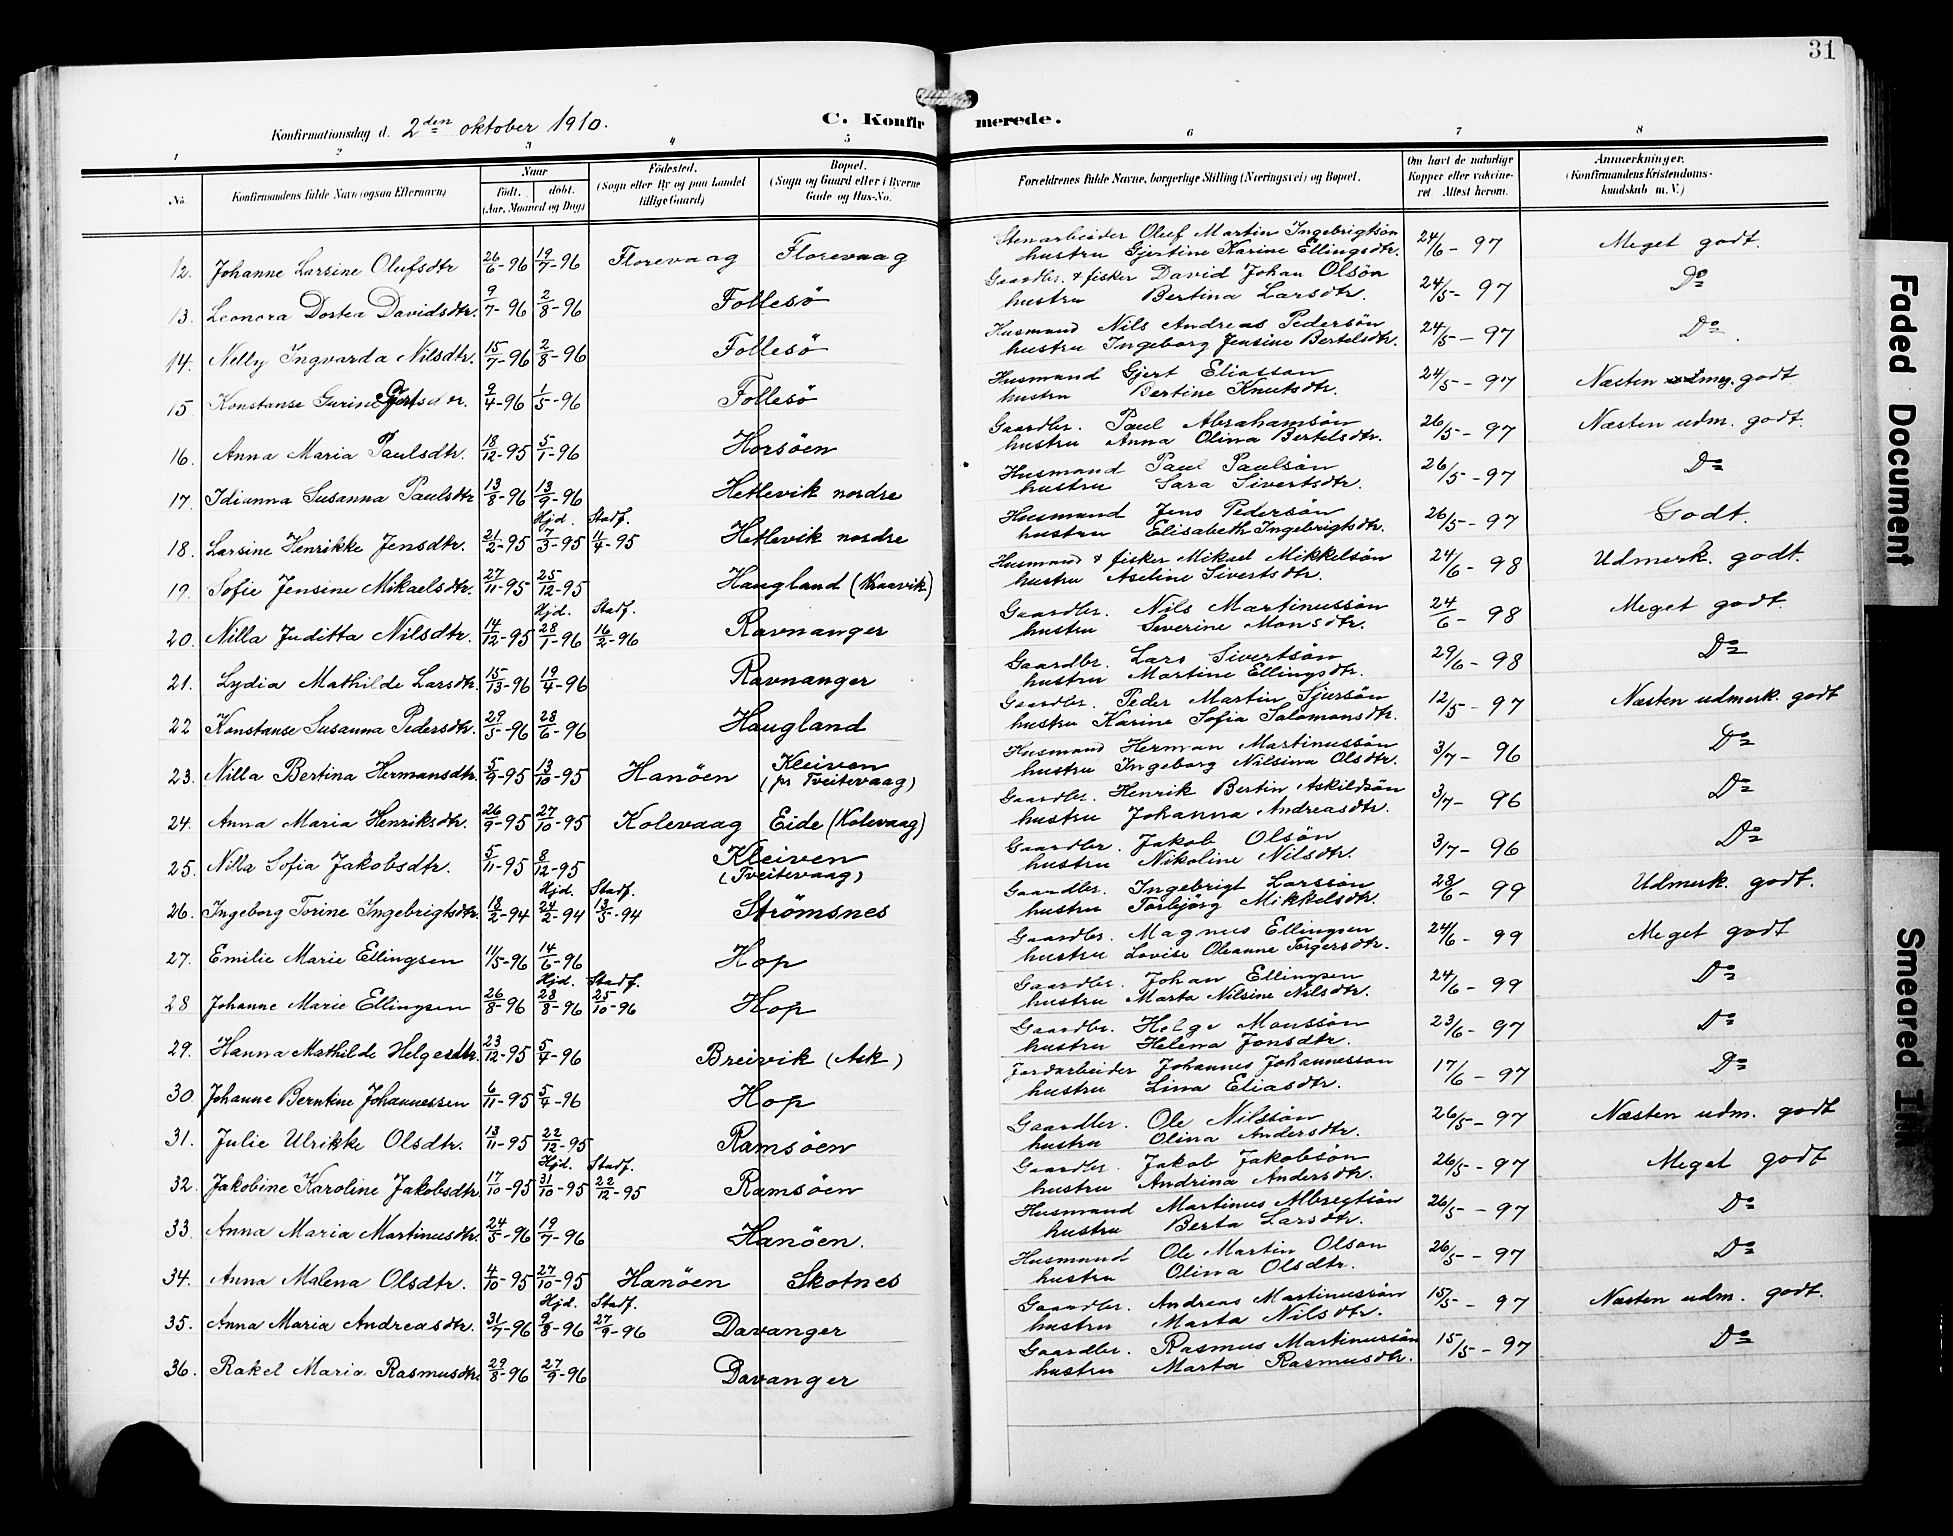 31
Konfirmationsdag d. 2den oktober 1910.
C. Konfirmerede.
1 2 3 4 5 6 7 8
No.
Konfirmandens fulde Navn (ogsaa Efternavn)
Naar
født. døbt.
(Aar, Maaned og Dag)
Fødested.
(Sogn eller By og paa Landet
tillige Gaard)
Bopæl.
(Sogn og Gaard eller i Byerne
Gade og Hus-No.
Forældrenes fulde Navne, borgerlige Stilling (Næringsvei) og Bopæl.
Om havt de naturlige
Kopper eller vakcine-
ret. Attest herom.
Anmærkninger.
(Konfirmandens Kristendoms-
kundskab m. V.)
12. Johanne Larsine Olufsdtr 26/6-96 19/7-96 Florevaag Florevaag Stenarbeider Oluf Martin Ingebrigtsøn 24/6-97 Meget godt.
hustru Gjertine Karine Ellingsdtr.
13. Leonora Dortea Davidsdtr. 9/7-96 2/8-96 Follesö Gaardbr. & fisker David Johan Olsøn 24/5-97 Do
hustru Bertina Larsdtr.
14. Nelly Ingvarda Nilsdtr. 15/7-96 2/8-96 Follesö Husmand Nils Andreas Pedersøn 24/5-97 Do
hustru Ingeborg Jensine Bertelsdtr.
15. Konstanse Gurine Gjertsdtr. 9/4-96 1/5-96 Follesö Husmand Gjert Eliasson 24/5-97 Næsten udm. godt
hustru Bertine Knutsdtr.
16. Anna Maria Paulsdtr. 18/12-95 5/1-96 Horsöen Gaardbr. Paul Abrahamsøn 26/5-97 Næsten udm. godt.
hustru Anna Olina Bertelsdtr.
17. Idianna Susanna Paulsdtr 13/8-96 13/9-96 Hetlevik nordre Husmand Paul Paulsøn 26/5-97 Do
hustru Sara Sivertsdtr.
Hjd. Stadf.
18. Larsine Henrikke Jensdtr. 21/2-95 7/3-95 11/4-95 Hetlevik nordre Husmand Jens Pedersøn 26/5-97 Godt.
hustru Elisabeth Ingebrigtsdtr.
19. Sofie Jensine Mikaelsdtr. 27/11-95 25/12-95 Haugland (Kraavik) Husmand & fisker Mikael Mikkelsøn 24/6-98 Udmerk. godt.
hustru Aseline Sivertsdtr.
Hjd. Stadf.
20. Nilla Juditta Nilsdtr. 14/12-95 28/1-96 16/2-96 Ravnanger Gaardbr. Nils Martinussøn 24/6-98 Meget godt.
hustru Severine Monsdtr.
21. Lydia Mathilde Larsdtr. 15/13-96 19/4-96 Ravnanger Gaardbr. Lars Sivertsøn 29/6-98 Do
hustru Martine Ellingsdtr.
22 Konstanse Susanna Pedersdtr. 29/5-96 28/6-96 Haugland Gaardbr. Peder Martin Sjursøn 12/5-97 Næsten udmerk. godt
hustru Karine Sofia Salomonsdtr.
23. Nilla Bertina Hermansdtr. 5/9-95 13/10-95 Hanöen Kleiven Husmand Herman Martinussøn 3/7-96 Do
(pr Tveitevaag) hustru Ingeborg Nilsina Olsdtr.
24. Anna Maria Henriksdtr. 26/9-95 27/10-95 Kolevaag Eide (Kolevaag) Gaardbr. Henrik Bertin Askildsøn 3/7-96 Do
hustru Johanna Andreasdtr.
25. Nilla Sofia Jakobsdtr. 5/11-95 8/12-95 Kleiven Gaardbr. Jakob Olsøn 3/7-96 Do
(Tveitevaag) hustru Nikoline Nilsdtr.
Hjd. Stadf.
26. Ingeborg Torine Ingebrigtsdtr. 18/2-94 24/2-94 13/5-94 Strömsnes Gaardbr. Ingebrigt Larssøn 23/6-99 Udmerk. godt.
hustru Torbjörg Mikkelsdtr.
27. Emilie Marie Ellingsen 11/5-96 14/6-96 Hop Gaardbr. Magnus Ellingsen 24/6-99 Meget godt
hustru Lovise Oleanne Torgersdtr.
Hjd. Stadf.
28 Johanne Marie Ellingsen 26/8-96 28/8-96 25/10-96 Hop Gaardbr. Johan Ellingsen 24/6-99 Do
hustru Marta Nilsine Nilsdtr.
29. Hanna Mathilde Helgesdtr. 23/12-95 5/4-96 Breivik (Ask) Gaardbr. Helge Monssøn 23/6-97 Do
hustru Helena Jonsdtr.
30. Johanne Berntine Johannessen 6/11-95 5/4-96 Hop Jordarbeider Johannes Johannesson 17/6-97 Do
hustru Lina Eliasdtr.
31. Julie Ulrikke Olsdtr. 13/11-95 22/12-95 Ramsöen Gaardbr. Ole Nilssøn 26/5-97 Næsten udm. godt
hustru Olina Andersdtr.
Hjd. Stadf.
32. Jakobine Karoline Jakobsdtr. 17/10-95 31/10-95 22/12-95 Ramsöen Gaardbr. Jakob Jakobsøn 26/5-97 Meget godt
hustru Andrina Andersdtr.
33. Anna Maria Martinusdtr. 24/5-96 19/7-96 Hanöen. Husmand Martinus Albregtsøn 26/5-97 Do
hustru Berta Larsdtr.
34. Anna Malena Olsdtr. 4/10-95 27/10-95 Hanöen Skotnes Husmand Ole Martin Olson 26/5-97 Do
hustru Olina Olsdtr.
Hjd. Stadf.
35. Anna Maria Andreasdtr. 31/7-96 9/8-96 27/9-96 Davanger Gaardbr. Andreas Martinussøn 15/5-97 Næsten udm. godt.
hustru Marta Nilsdtr.
36. Rakel Maria Rasmusdtr. 29/8-96 27/9-96 Davanger Gaardbr. Rasmus Martinussøn 15/5-97 Do
hustru Marta Rasmusdtr.
Faded Document
Smeared Ink